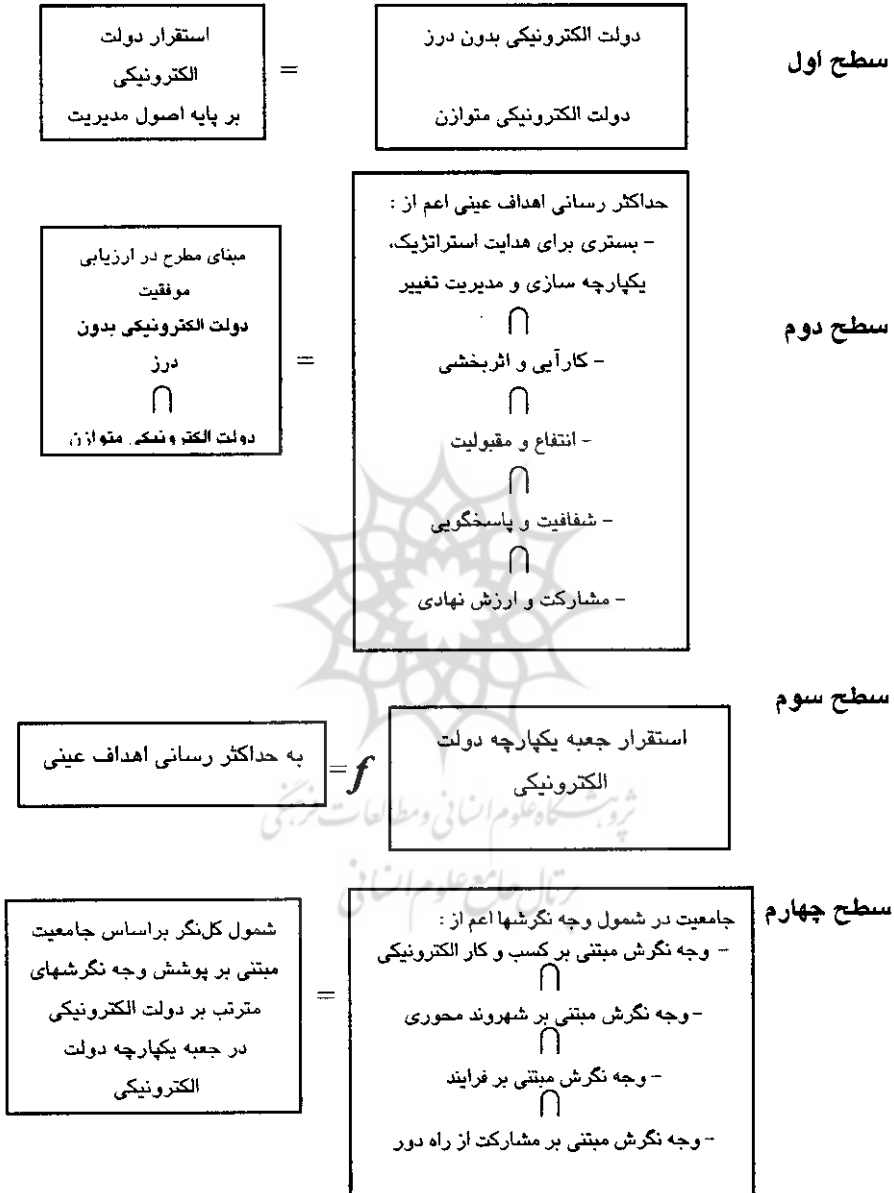 سطح اول
دولت الکترونیکی بدون درز
دولت الکترونیکی متوازن
=
استقرار دولت
الکترونیکی
بر پایه اصول مدیریت
سطح دوم
حداکثر رسانی اهداف عینی اعم از :
- بستری برای هدایت استراتژیک،
یکپارچه سازی و مدیریت تغییر
∩
- کارآیی و اثربخشی
∩
- انتفاع و مقبولیت
∩
- شفافیت و پاسخگویی
∩
- مشارکت و ارزش نهادی
=
مبنای مطرح در ارزیابی
موفقیت
دولت الکترونیکی بدون
درز
∩
دولت الکترونیکی متوازن
سطح سوم
استقرار جعبه یکپارچه دولت
الکترونیکی
=f
به حداکثر رسانی اهداف عینی
پژوهشگاه علوم انسانی و مطالعات فرهنگی
پرتال جامع علوم انسانی
سطح چهارم
جامعیت در شمول وجه نگرشها اعم از :
- وجه نگرش مبتنی بر کسب و کار الکترونیکی
∩
- وجه نگرش مبتنی بر شهروند محوری
∩
- وجه نگرش مبتنی بر فرایند
∩
- وجه نگرش مبتنی بر مشارکت از راه دور
=
شمول کل‌نگر براساس جامعیت
مبتنی بر پوشش وجه نگرشهای
مترتب بر دولت الکترونیکی
در جعبه یکپارچه دولت
الکترونیکی